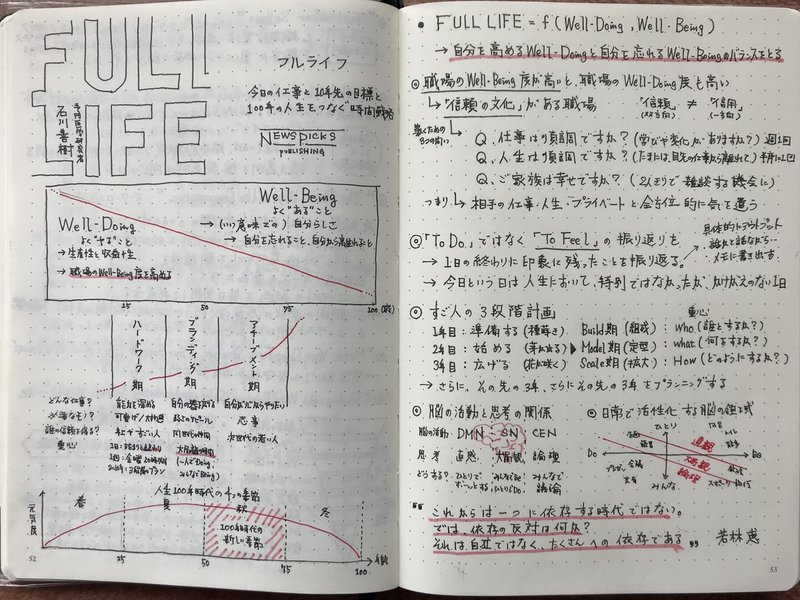 FULL
LIFE
予防医学研究者
石川善樹
フルライフ
今日の仕事と10年先の目標と
100年の人生をつなぐ時間戦略
NEWSPICKS
PUBLISHING
Well-Doing
よく"する"こと
→ 生産性と収益性
→ 職場のWell-Being度を高める
Well-Being
よく"ある"こと
→ (いい意味での) 自分らしさ
→ 自分を忘れること、自分から離れること
25
50
75
100 (歳)
ハードワーク期
ブランディング期
アチーブメント期
どんな仕事?
誰の信頼を得る?
重心
能力を深める
大御所
次世代の若い人
人生100年時代の4つの季節
元気度
春
夏
秋
冬
100年時代の
新しい季節
25
50
75
100
年齢
52
• FULL LIFE = f (Well-Doing, Well-Being)
→ 自分を高めるWell-Doingと自分を忘れるWell-Beingのバランスをとる
◎ 職場のWell-Being度が高いと、職場のWell-Doing度も高い
→ 「信頼の文化」がある職場 「信頼」≠「信用」
(双方向) (一方向)
築くための
3つの問い
Q. 仕事は順調ですか? (学びや変化がありますか?) 週1回
Q. 人生は順調ですか? (たまには目先の仕事から離れて) 半期に1回
Q. ご家族は幸せですか? (2人きりで雑談する機会に)
つまり → 相手の仕事・人生・プライベートと全方位的に気を遣う
◎ 「To Do」ではなく「To Feel」の振り返りを
具体的にアウトプット
誰かと話ながら…
メモに書き出す。
→ 1日の終わりに印象に残ったことを振り返る。
→ 今日という日は人生において、特別ではなかったが、かけがえのない1日
◎ すご人の3段階計画
重心
1年目: 準備する (種蒔き) Build期 (組成) : Who (誰とするか?)
2年目: 始める (芽が出る) Model期 (定型) : What (何をするか?)
3年目: 広げる (花が咲く) Scale期 (拡大) : How (どのようにするか?)
→ さらに、その先の3年、さらにその先の3年をプランニングする
◎ 脳の活動と思考の関係
脳の活動: DMN SN CEN
思考: 直感 大局観 論理
どうする? ひとりでボーっとする みんなでBe ひとりでDo みんなで議論
◎ 日常で活性化する脳の鑑え式
Do
Be
ひとり
みんな
直観
大局観
論理
会議
"これからは一つに依存する時代ではない。
では、依存の反対は何か?
それは自立ではなく、たくさんへの依存である" 若林恵
53